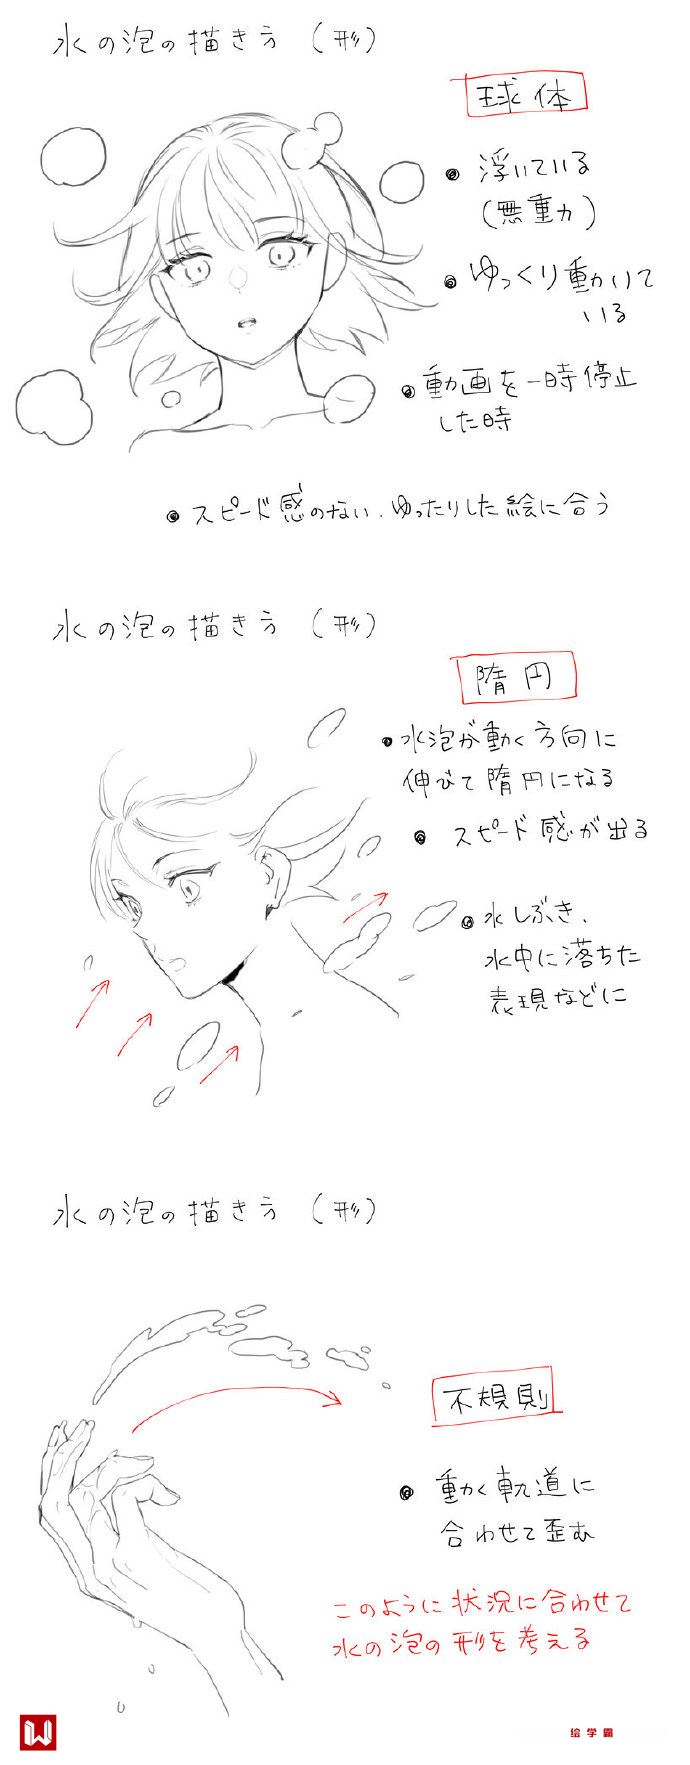 水の泡の描き方 (形)
球体
浮いている
(無重力)
ゆっくり動いて
いる
動画を一時停止
した時
スピード感のない、ゆったりした絵に合う
水の泡の描き方 (形)
隋円
水泡が動く方向に
伸びて隋円になる
スピード感が出る
水しぶき、
水中に落ちた
表現などに
水の泡の描き方 (形)
不規則
動く軌道に
合わせて歪む
このように状況に合わせて
水の泡の形を考える
绘学霸